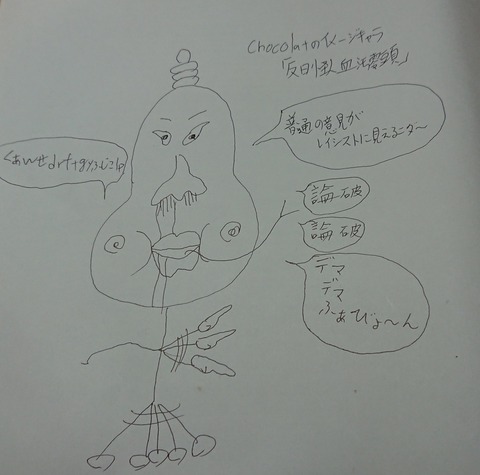 Chocolatのイメージキャラ
普通の意見が
レイシストに見えるニダ〜
くぁwせdrftgyふじこlp
論破
論破
デマ
デマ
ふぁびょ〜ん